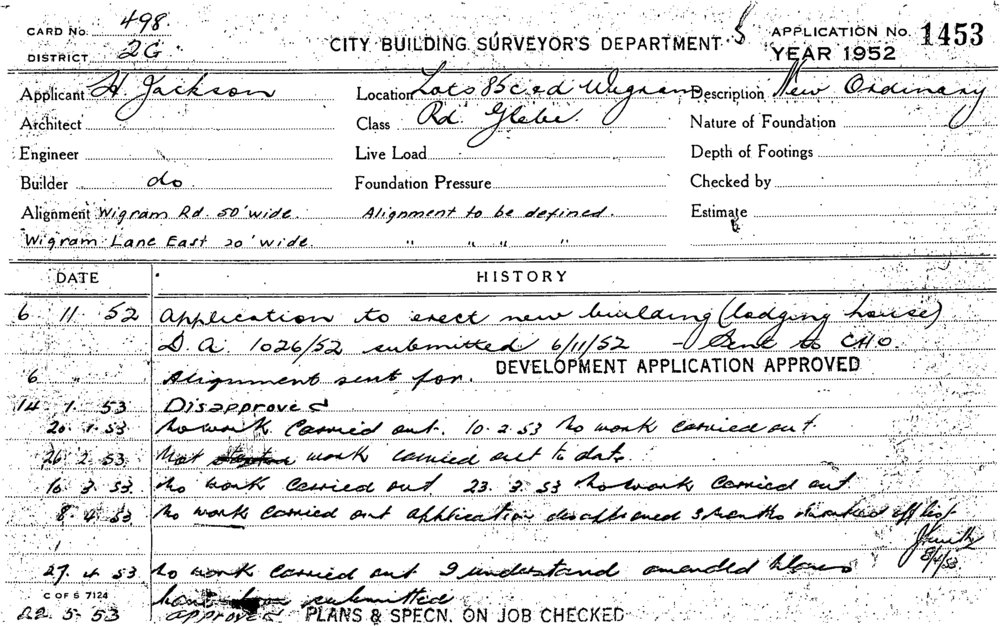 CARD No. 498
DISTRICT 2G
CITY BUILDING SURVEYOR'S DEPARTMENT
APPLICATION No. 1453
YEAR 1952
Applicant H. Jackson Location Lots 85 c ed Wigram Description New Ordinary
Architect Class Rd. Glebe. Nature of Foundation
Engineer Live Load Depth of Footings
Builder do Foundation Pressure Checked by
Alignment Wigram Rd. 50' wide. Alignment to be defined. Estimate
Wigram Lane East 20' wide. " " " "
DATE HISTORY
6 11 52 Application to erect new building (lodging house)
D.A. 1026/52 submitted 6/11/52 - Sent to CHO.
DEVELOPMENT APPLICATION APPROVED
6 " Alignment sent for.
14 1 53 Disapproved
20 1 53 No work carried out. 10.2.53 No work carried out
26 2 53 Not work carried out to date
16 3 53 No work carried out 23.3.53 No work carried out
8 4 53 No work carried out application disapproved 3 months marked off list
8/4/53
27 4 53 No work carried out I understand amended plans
have submitted
C OF S 7124
22 5 53 approved PLANS & SPECN. ON JOB CHECKED